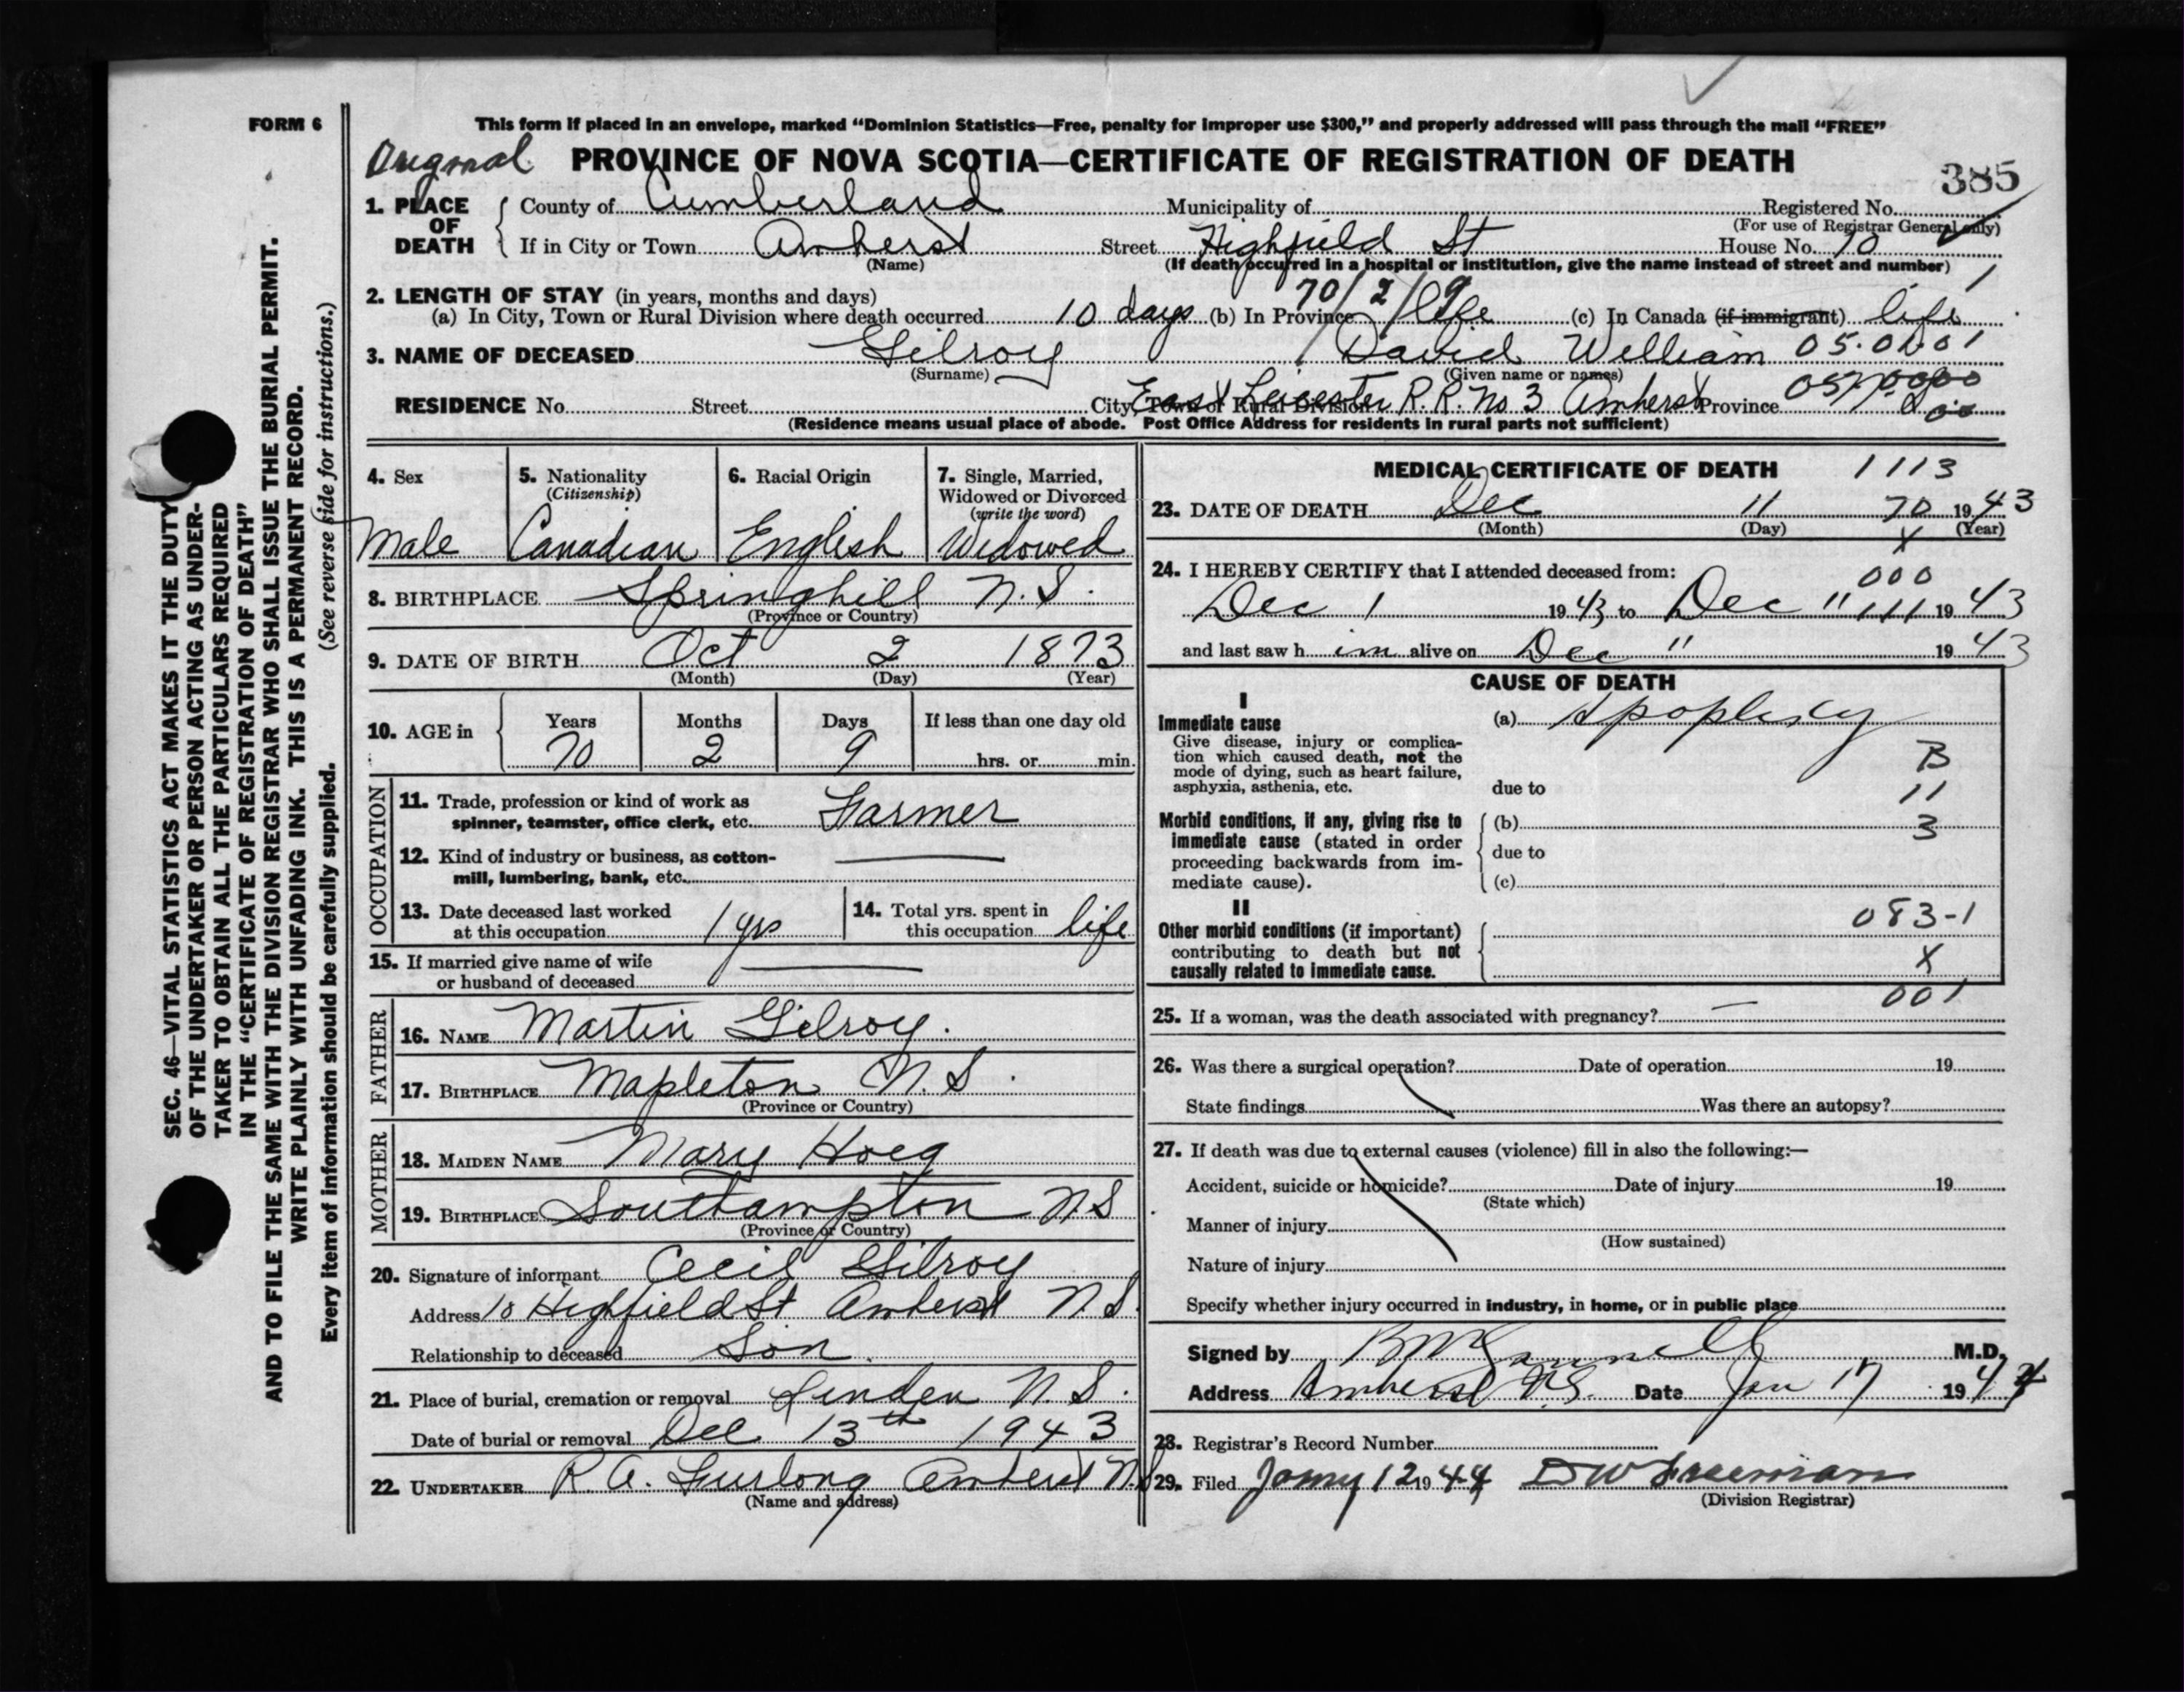 FORM 6
This form if placed in an envelope, marked “Dominion Statistics—Free, penalty for improper use $300,” and properly addressed will pass through the mail “FREE”
Original PROVINCE OF NOVA SCOTIA—CERTIFICATE OF REGISTRATION OF DEATH
385
1. PLACE OF DEATH
County of Cumberland Municipality of Registered No.
(For use of Registrar General only)
If in City or Town Amherst Street Highfield St House No. 10
(Name) (If death occurred in a hospital or institution, give the name instead of street and number)
2. LENGTH OF STAY (in years, months and days) 70/2/9 1
(a) In City, Town or Rural Division where death occurred 10 days (b) In Province life (c) In Canada (if immigrant) life
3. NAME OF DECEASED Gilroy David William
(Surname) (Given name or names)
RESIDENCE No. Street City, Town or Rural Division East Leicester R.R. No 3 Amherst Province
(Residence means usual place of abode. Post Office Address for residents in rural parts not sufficient)
4. Sex Male
5. Nationality (Citizenship) Canadian
6. Racial Origin English
7. Single, Married, Widowed or Divorced (write the word) Widowed
8. BIRTHPLACE Springhill N.S.
(Province or Country)
9. DATE OF BIRTH Oct 2 1873
(Month) (Day) (Year)
10. AGE in Years Months Days If less than one day old
70 2 9 hrs. or min.
OCCUPATION
11. Trade, profession or kind of work as
spinner, teamster, office clerk, etc. Farmer
12. Kind of industry or business, as cotton-
mill, lumbering, bank, etc.
13. Date deceased last worked
at this occupation 1 yrs
14. Total yrs. spent in
this occupation life
15. If married give name of wife
or husband of deceased
FATHER
16. NAME Martin Gilroy.
17. BIRTHPLACE Mapleton N.S.
(Province or Country)
MOTHER
18. MAIDEN NAME Mary Hoeg
19. BIRTHPLACE Southampton NS
(Province or Country)
20. Signature of informant Cecil Gilroy
Address 10 Highfield St Amherst N.S.
Relationship to deceased Son.
21. Place of burial, cremation or removal Linden N.S.
Date of burial or removal Dec 13th 1943
22. UNDERTAKER R.A. Furlong Amherst N.S.
(Name and address)
MEDICAL CERTIFICATE OF DEATH 1113
23. DATE OF DEATH Dec 11 70 1943
(Month) (Day) (Year)
X
24. I HEREBY CERTIFY that I attended deceased from:
000
Dec 1 1943 to Dec 11 111 1943
and last saw him alive on Dec 11 1943
CAUSE OF DEATH
I
Immediate cause (a) Apoplexy
Give disease, injury or complica-
tion which caused death, not the
mode of dying, such as heart failure,
asphyxia, asthenia, etc.
due to
B
11
3
Morbid conditions, if any, giving rise to
immediate cause (stated in order
proceeding backwards from im-
mediate cause).
(b)
due to
(c)
II
Other morbid conditions (if important)
contributing to death but not
causally related to immediate cause.
083-1
X
001
25. If a woman, was the death associated with pregnancy? —
26. Was there a surgical operation? Date of operation 19
State findings Was there an autopsy?
27. If death was due to external causes (violence) fill in also the following:—
Accident, suicide or homicide? Date of injury 19
(State which)
Manner of injury
(How sustained)
Nature of injury
Specify whether injury occurred in industry, in home, or in public place
Signed by M.D.
Address Amherst N.S. Date Jan 17 1944
28. Registrar's Record Number
29. Filed 12 1944 DW Freeman
(Division Registrar)
SEC. 46—VITAL STATISTICS ACT MAKES IT THE DUTY
OF THE UNDERTAKER OR PERSON ACTING AS UNDER-
TAKER TO OBTAIN ALL THE PARTICULARS REQUIRED
IN THE “CERTIFICATE OF REGISTRATION OF DEATH”
AND TO FILE THE SAME WITH THE DIVISION REGISTRAR WHO SHALL ISSUE THE BURIAL PERMIT.
WRITE PLAINLY WITH UNFADING INK. THIS IS A PERMANENT RECORD.
Every item of information should be carefully supplied. (See reverse side for instructions.)